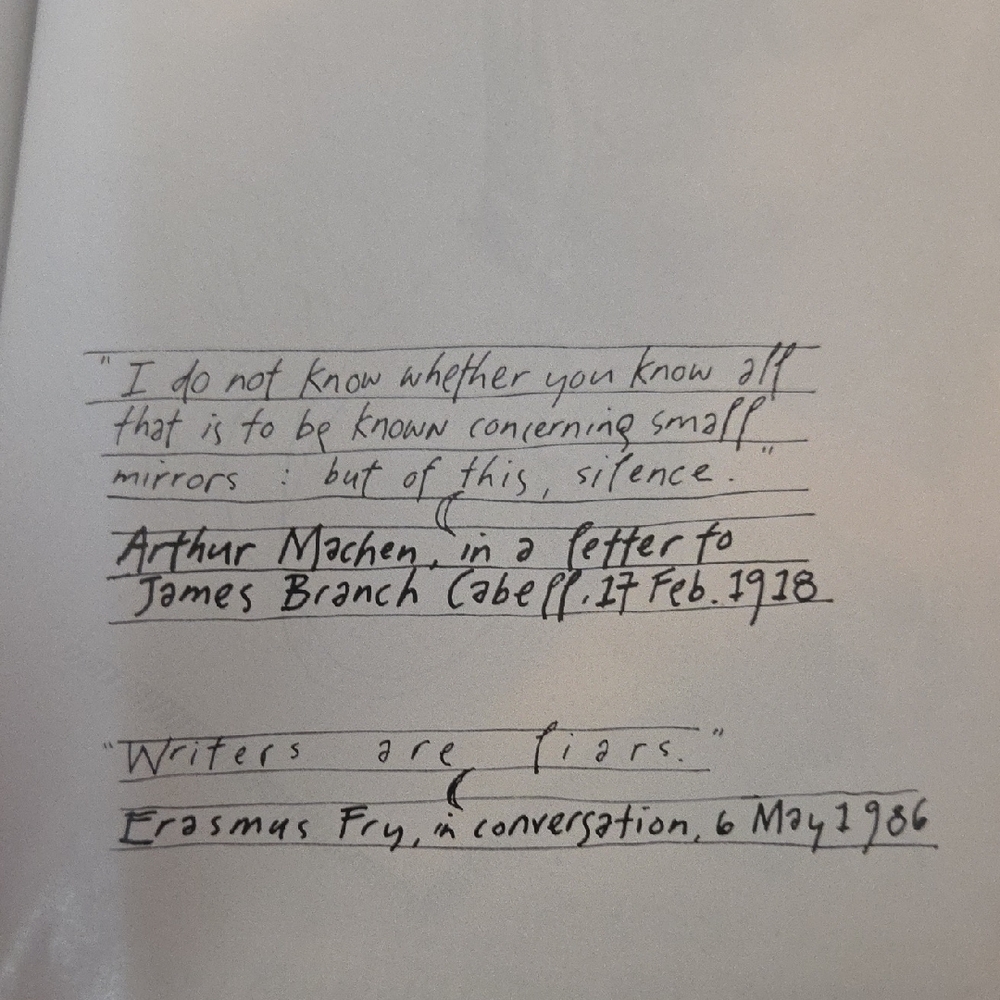 "I do not know whether you know all
that is to be known concerning small
mirrors : but of this, silence."
Arthur Machen, in a letter to
James Branch Cabell. 17 Feb. 1918
"Writers are liars."
Erasmus Fry, in conversation, 6 May 1986